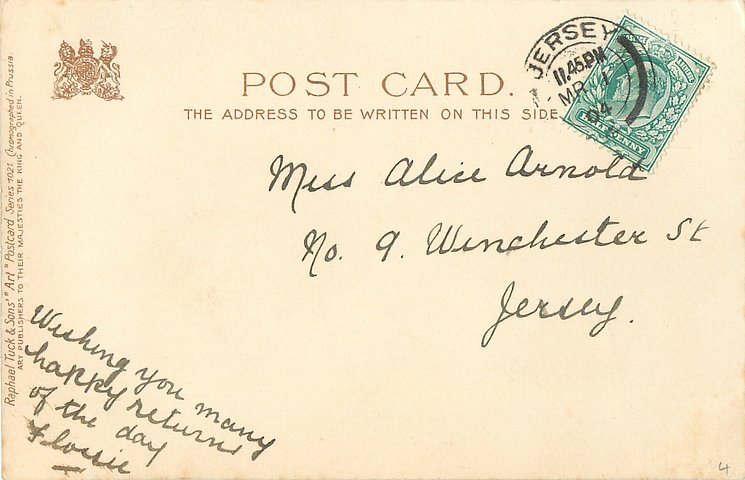 POST CARD.
THE ADDRESS TO BE WRITTEN ON THIS SIDE
JERSEY
11.45PM
MR 1
04
Miss Alice Arnold
No. 9. Winchester St
Jersey.
Wishing you many
happy returns
of the day
Flossie
Raphael Tuck & Sons' "Art" Postcard Series 1027. Chromographed in Prussia.
ART PUBLISHERS TO THEIR MAJESTIES THE KING AND QUEEN.
4